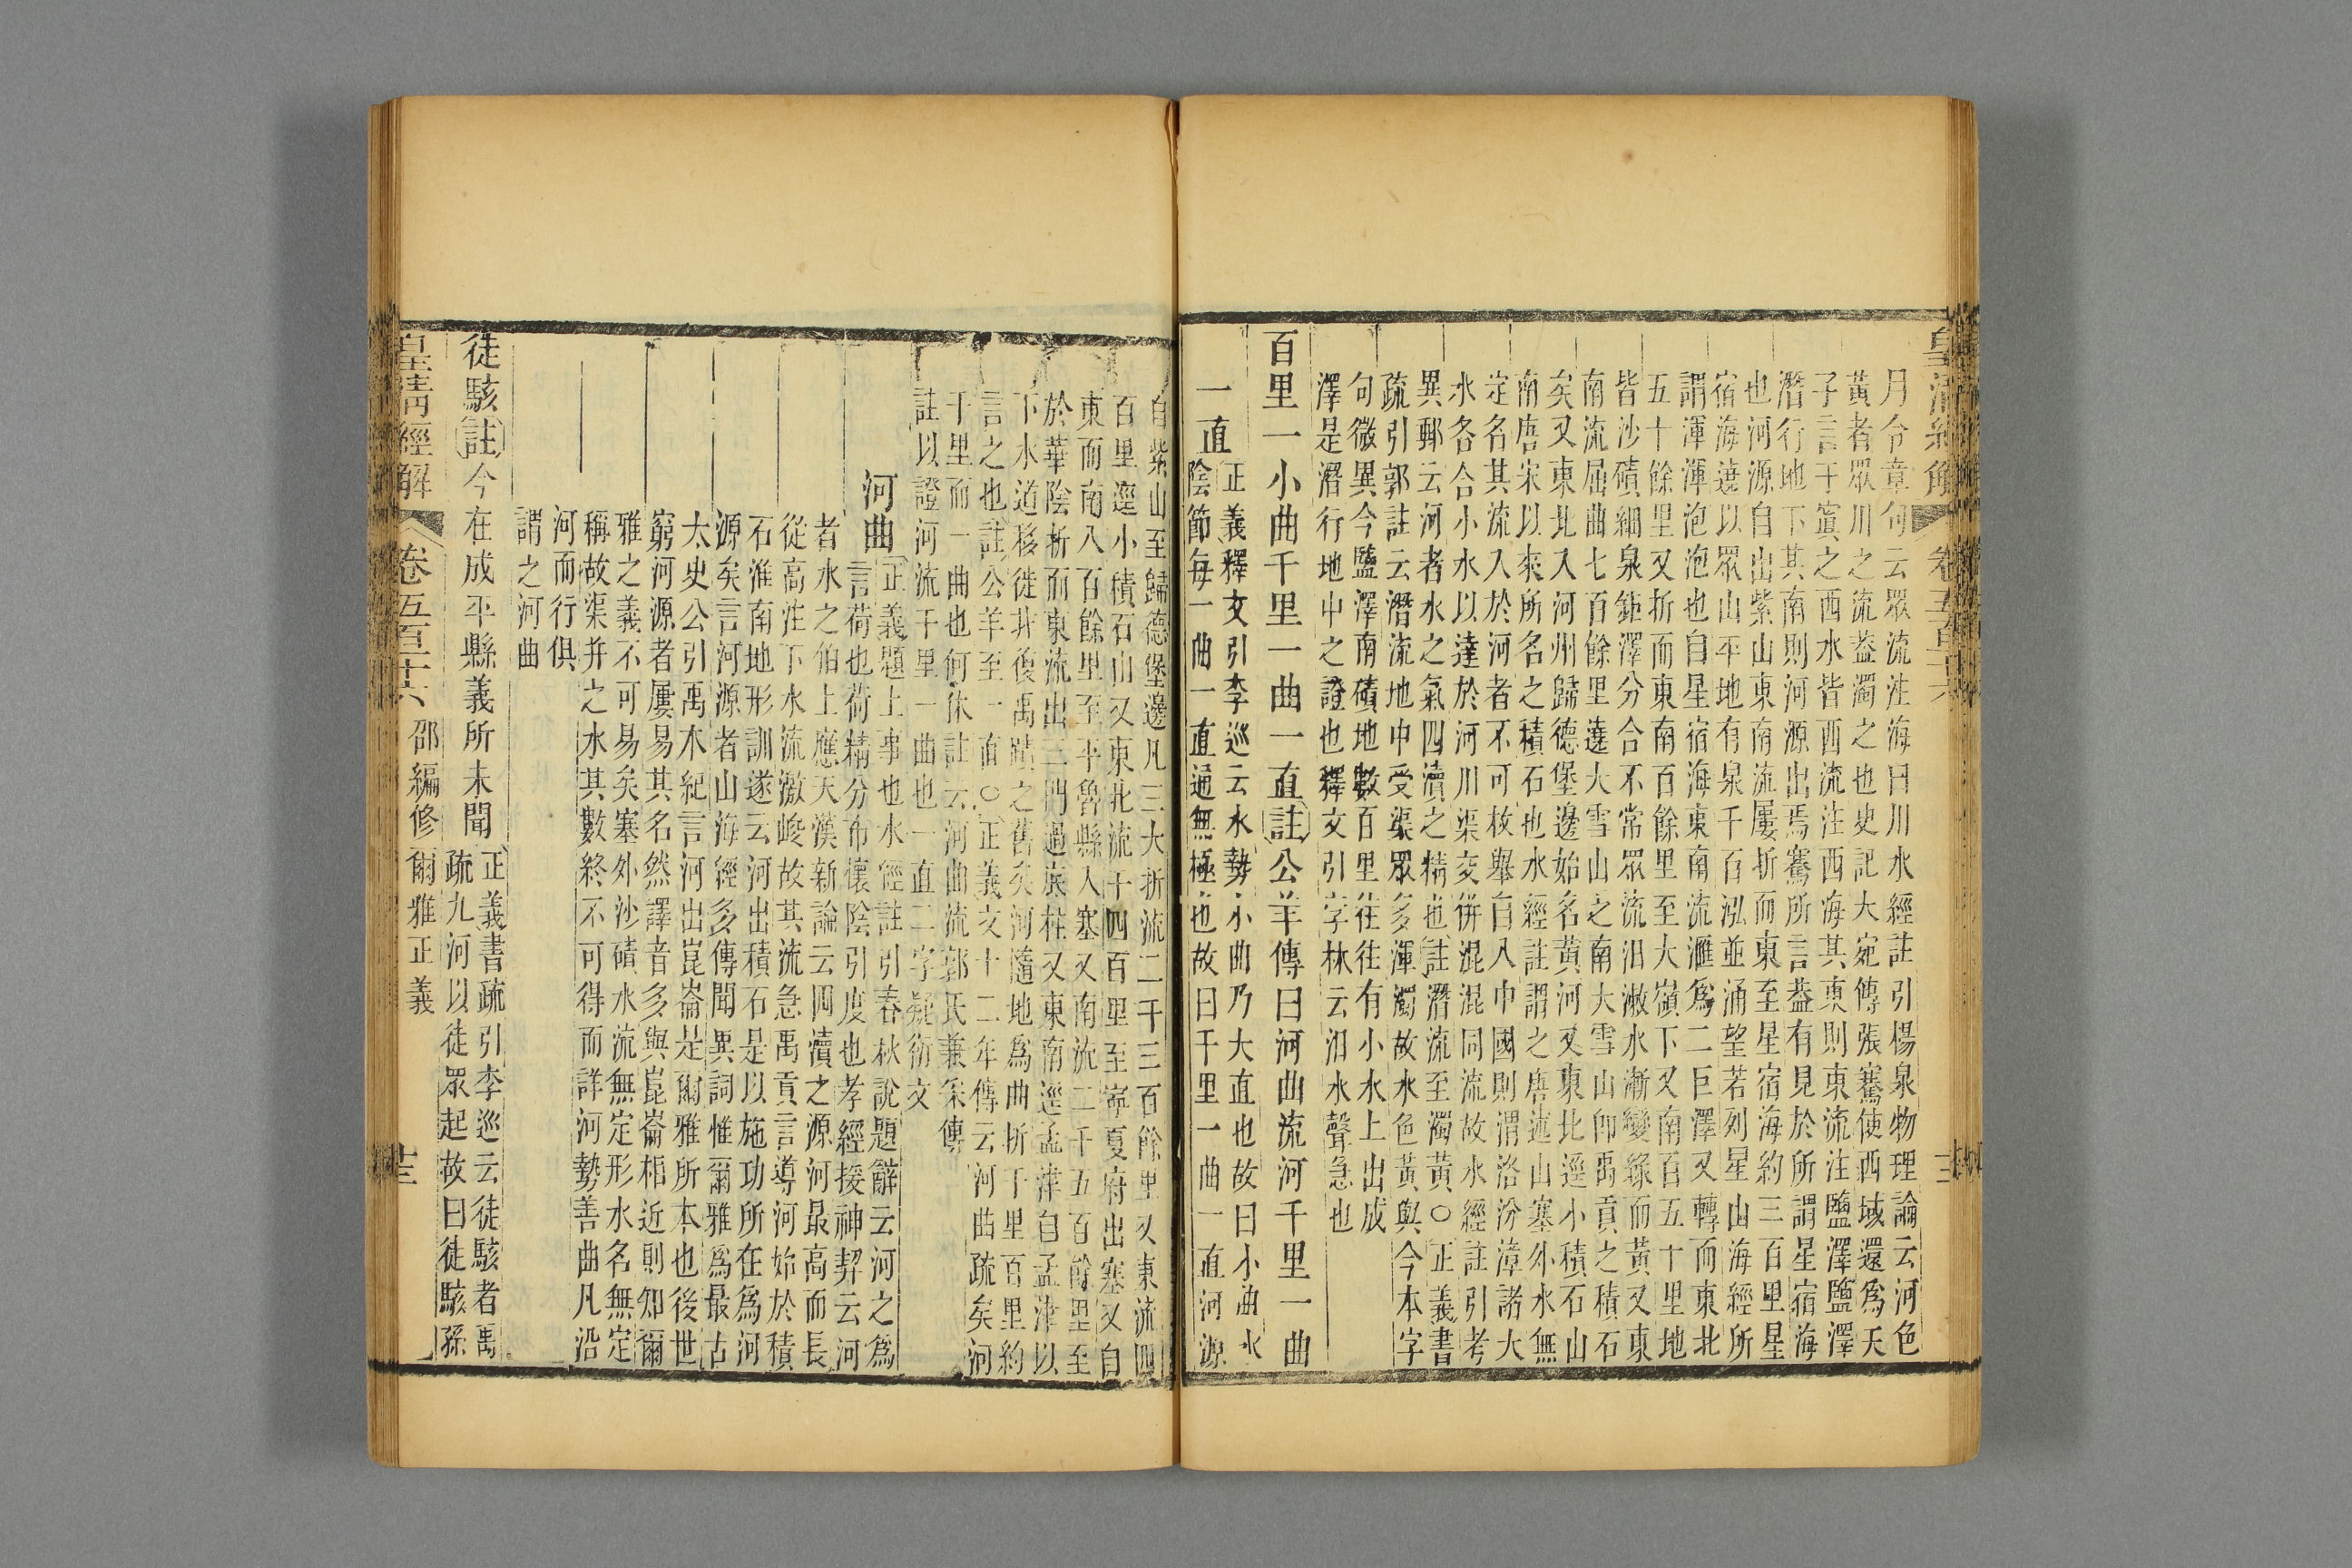 皇清經解 卷五百十六
月令章句云眾流注海曰川水經註引楊泉物理論云河色
黃者眾川之流益濁之也史記大宛傳張騫使西域還為天
子言于窴之西水皆西流注西海其東則東流注鹽澤鹽澤
潛行地下其南則河源出焉騫所言蓋有見於所謂星宿海
也河源自出紫山東南流屢折而東至星宿海約三百里星
宿海遶以眾山平地有泉千百泓並涌望若列星山海經所
謂渾渾泡泡也自星宿海東南流滙為二巨澤又轉而東北
五十餘里又折而東南百餘里至大嶺下又南百五十里地
皆沙磧細泉鉅澤分合不常眾流汨潎水漸變綠而黃又東
南流屈曲七百餘里遶大雪山之南大雪山卽禹貢之積石
矣又東北入河州歸德堡邊始名黃河又東北逕小積石山
南唐宋以來所名之積石也水經註謂之唐述山塞外水無
定名其流入於河者不可枚舉自入中國則渭洛汾漳諸大
水各合小水以達於河川渠交併混混同流故水經註引考
異郵云河者水之氣四瀆之精也註潛流至濁黃○正義書
疏引郭註云潛流地中受渠眾多渾濁故水色黃與今本字
句微異今鹽澤南磧地數百里往往有小水上出成
澤是潛行地中之證也釋文引字林云汨水聲急也
百里一小曲千里一曲一直註公羊傳曰河曲流河千里一曲
一直正義釋文引李巡云水勢小曲乃大直也故曰小曲水
陰節每一曲一直通無極也故曰千里一曲一直河源
自紫山至歸德堡邊凡三大折流二千三百餘里又東流四
百里逕小積石山又東北流十四百里至寧夏府出塞又自
東而南八百餘里至平魯縣入塞又南流二千五百餘里至
於華陰折而東流出三門過底柱又東南逕孟津自孟津以
下水道移徙非復禹蹟之舊矣河隨地為曲折千里百里約
言之也註公羊至一直○正義文十二年傳云河曲疏矣河
千里而一曲也何休註云河曲流郭氏兼采傳
註以證河流千里一曲也一直二字疑衍文
河曲正義題上事也水經註引春秋說題辭云河之為
言荷也荷精分布懷陰引度也孝經援神契云河
者水之伯上應天漢新論云四瀆之源河最高而長
從高注下水流激峻故其流急禹貢言導河始於積
石淮南地形訓遂云河出積石是以施功所在為河
源矣言河源者山海經多傳聞異詞惟爾雅為最古
太史公引禹本紀言河出崑崙是爾雅所本也後世
窮河源者屢易其名然譯音多與崑崙相近則知爾
雅之義不可易矣塞外沙磧水流無定形水名無定
稱故渠并之水其數終不可得而詳河勢善曲凡沿
河而行俱
謂之河曲
徒駭註今在成平縣義所未聞正義書疏引李巡云徒駭者禹
疏九河以徒眾起故曰徒駭孫
皇清經解 卷五百十六 邵編修爾雅正義